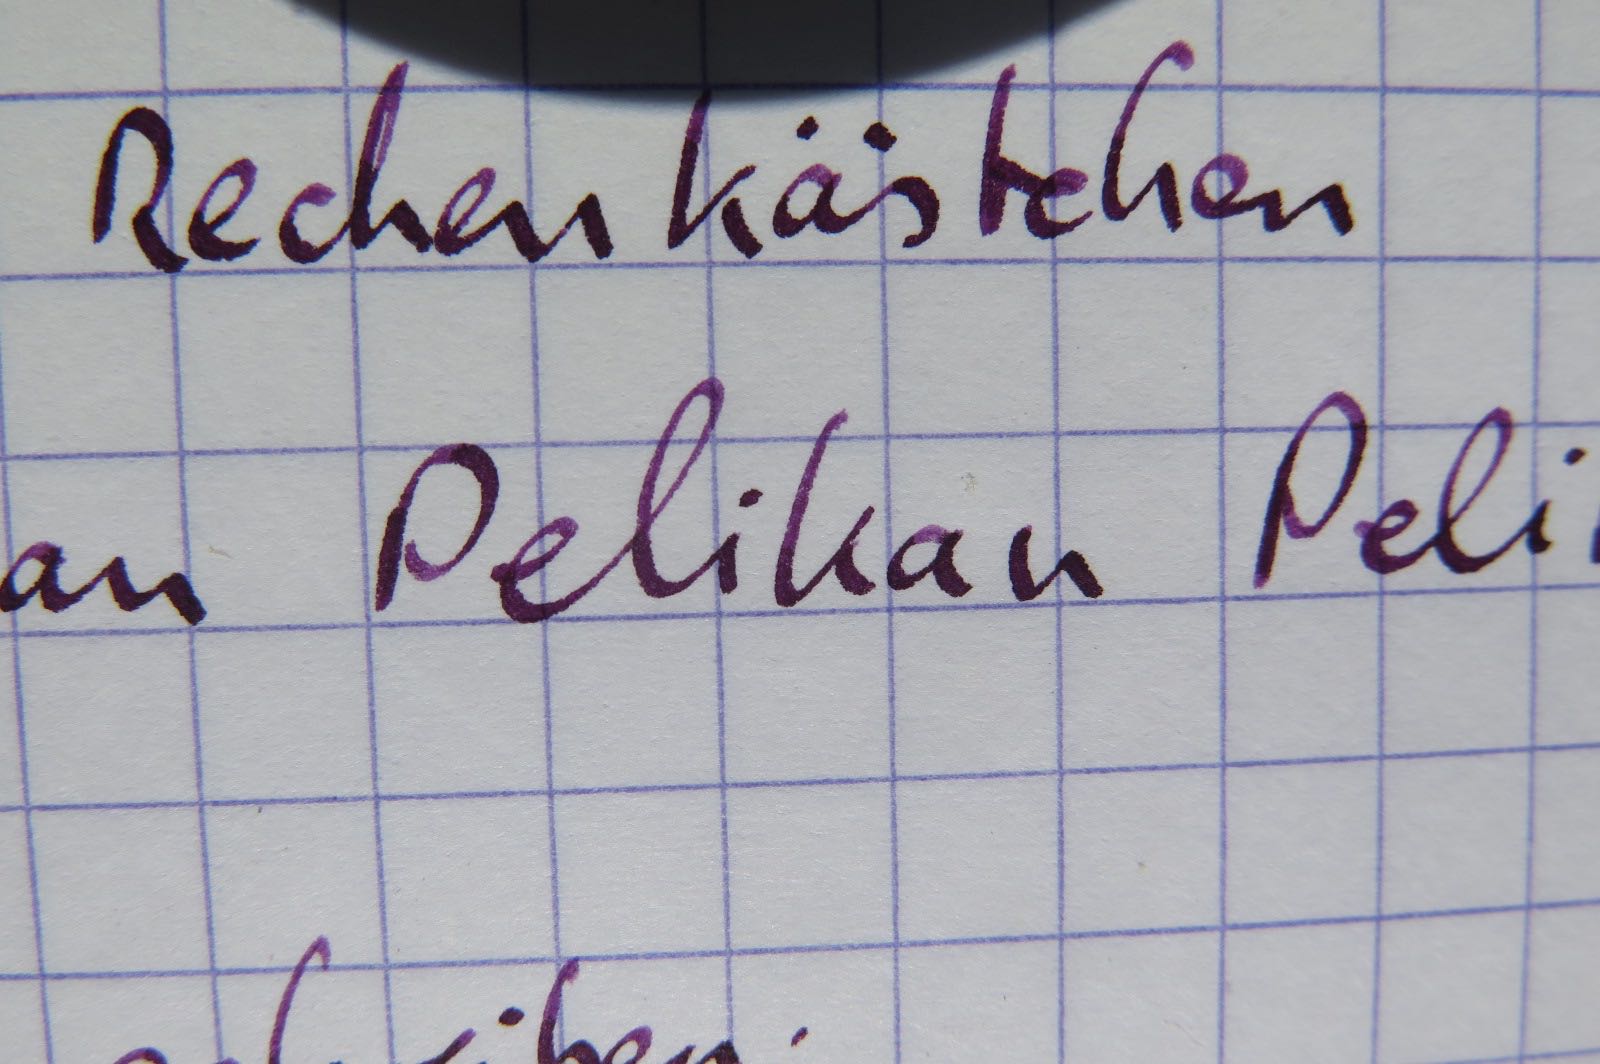 Rechenkästchen
an Pelikan Peli